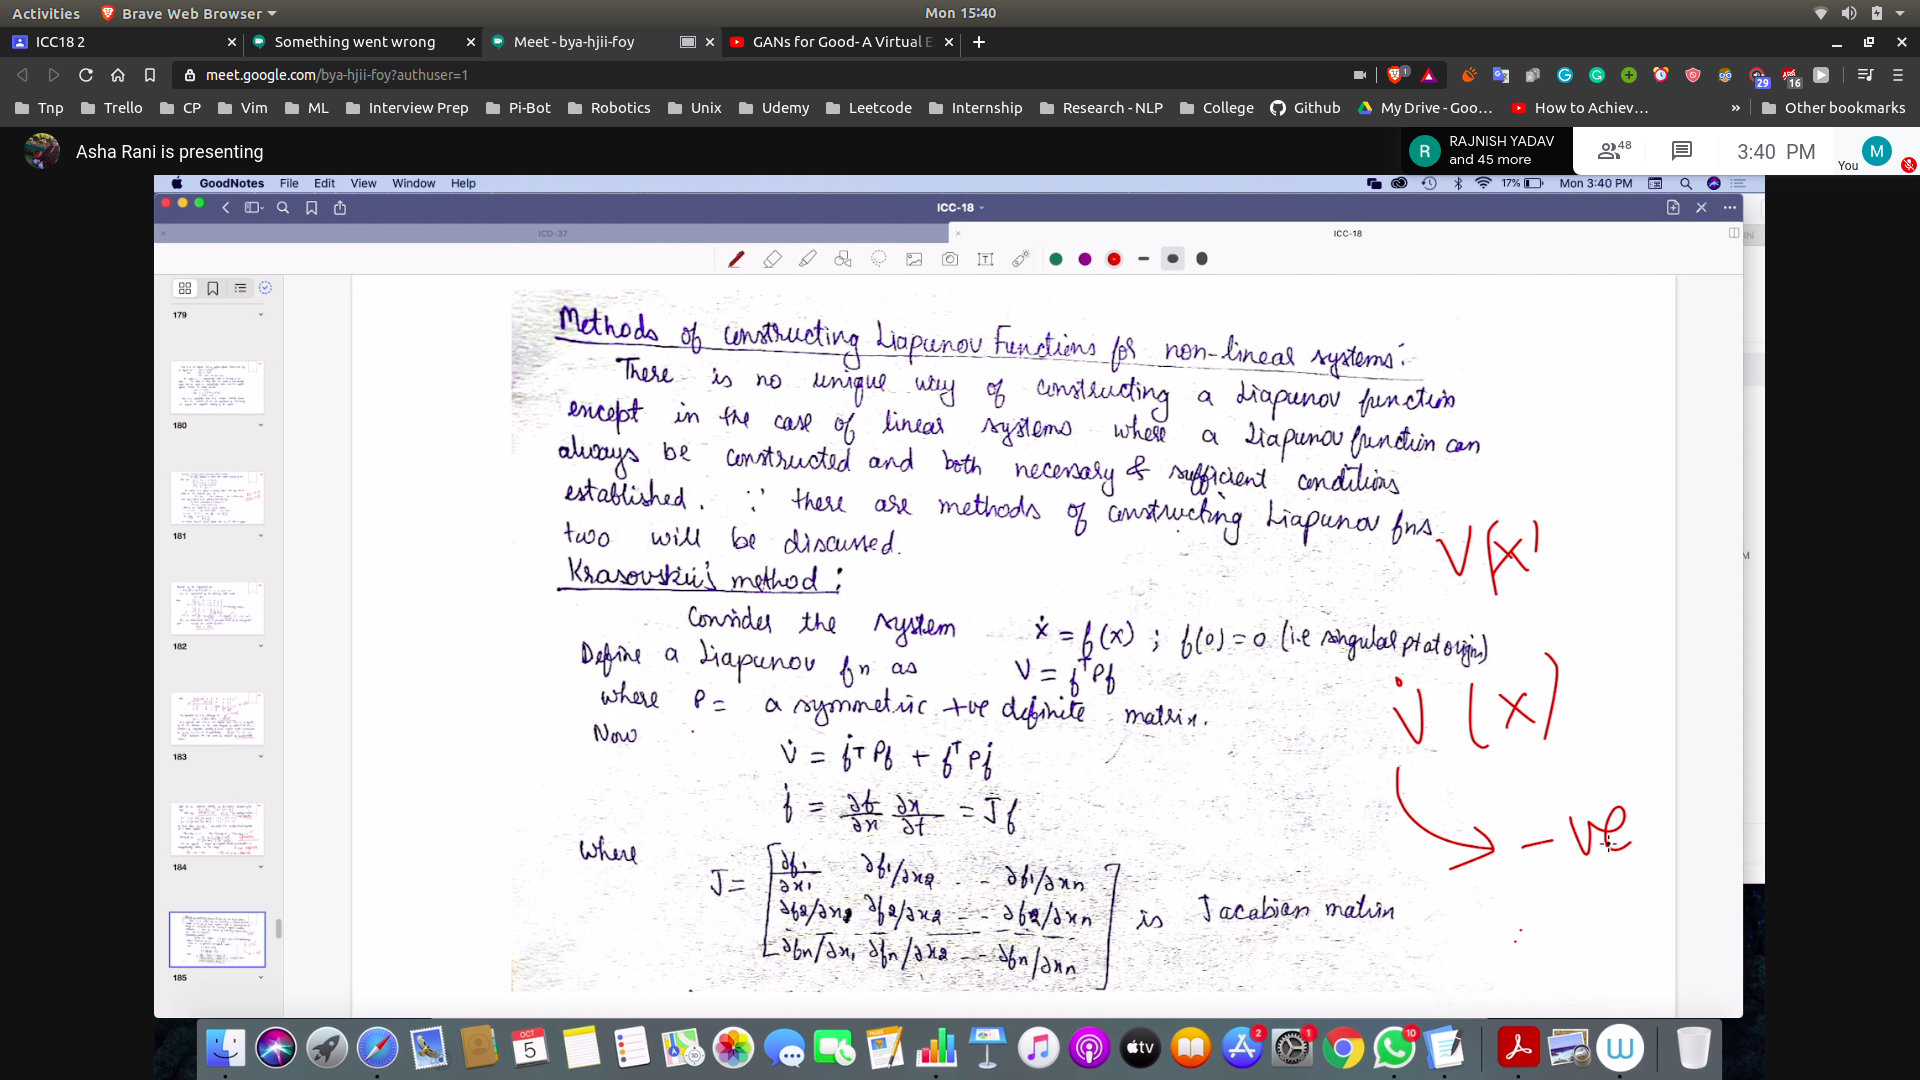 Activities Brave Web Browser Mon 15:40
ICC18 2 Something went wrong Meet - bya-hjii-foy GANs for Good- A Virtual E
meet.google.com/bya-hjii-foy?authuser=1 1 29 16
Tnp Trello CP Vim ML Interview Prep Pi-Bot Robotics Unix Udemy Leetcode Internship Research - NLP College Github My Drive - Goo… How to Achiev… » Other bookmarks
Asha Rani is presenting R RAJNISH YADAV and 45 more 48 3:40 PM You M
GoodNotes File Edit View Window Help 17% Mon 3:40 PM
ICC-18
ICD-37 ICC-18
179
180
181
182
183
184
185
Methods of constructing Liapunov Functions for non-linear systems:
There is no unique way of constructing a Liapunov function
except in the case of linear systems where a Liapunov function can
always be constructed and both necessary & sufficient conditions
established. ∵ there are methods of constructing Liapunov fns
two will be discussed.
V(x)
Krasovskii's method:
Consider the system ẋ = f(x) ; f(0) = 0 (i.e singular pt at origin)
Define a Liapunov fn as V = fᵀPf
where P = a symmetric +ve definite matrix.
V̇ (x)
Now
V̇ = ḟᵀPf + fᵀPḟ
ḟ = ∂f/∂x ∂x/∂t = Jf
- ve
where
J = [∂f1/∂x1 ∂f1/∂x2 - - ∂f1/∂xn
∂f2/∂x2 ∂f2/∂x2 - - ∂f2/∂xn
∂fn/∂x1 ∂fn/∂x2 - - ∂fn/∂xn] is Jacabian matrix
OCT 5 tv 2 1 10